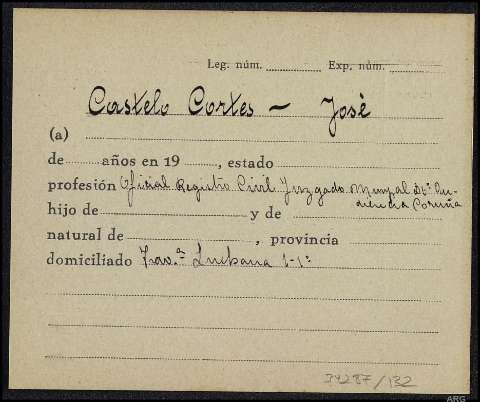 Leg. núm. Exp. núm.
Castelo Cortes - José
(a)
de años en 19 , estado
profesión Oficial Registro Civil Juzgado Munpal Dtº Au-
diencia Coruña
hijo de y de
natural de , provincia
domiciliado Trav.ª Luchana 1-1º
34287/132
ARG